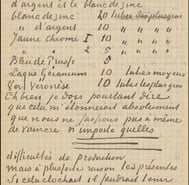 d'argent et le blanc de zinc
blanc de zinc 20 tubes
" d'argent 10 " "
Jaune Chrome I " "
" " 2 5 " "
Bleu de Prusse 5
Laque Geranium 10 tubes moyens
Vert Véronèse 10 tubes
Eh bien je dois pourtant dire
que cela m'étonnerait absolument
que nous ne fussions pas à même
de vaincre n'importe quelles
difficultés de production
mais à plus forte raison les présentes
Si cela clochait il faudrait